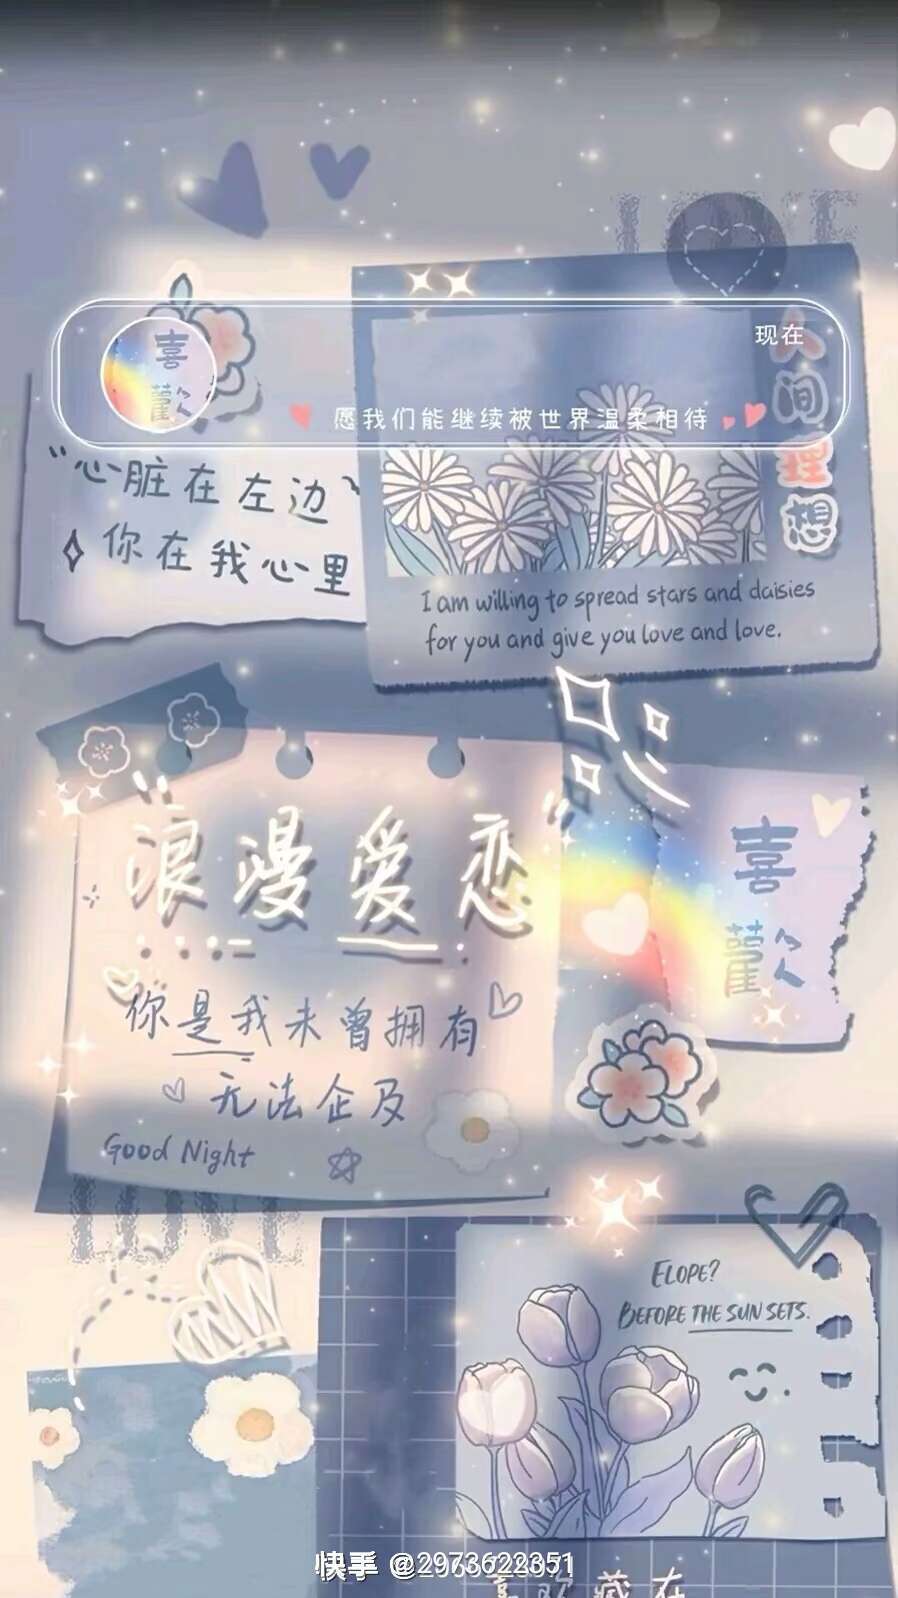 LOVE
现在
喜
歡
愿我们能继续被世界温柔相待
人间理想
"心脏在左边"
你在我心里
I am willing to spread stars and daisies
for you and give you love and love.
"浪漫爱恋"
喜
歡
你是我未曾拥有
无法企及
Good Night
LOVE
ELOPE?
BEFORE THE SUN SETS.
快手 @2973622351
喜欢藏在